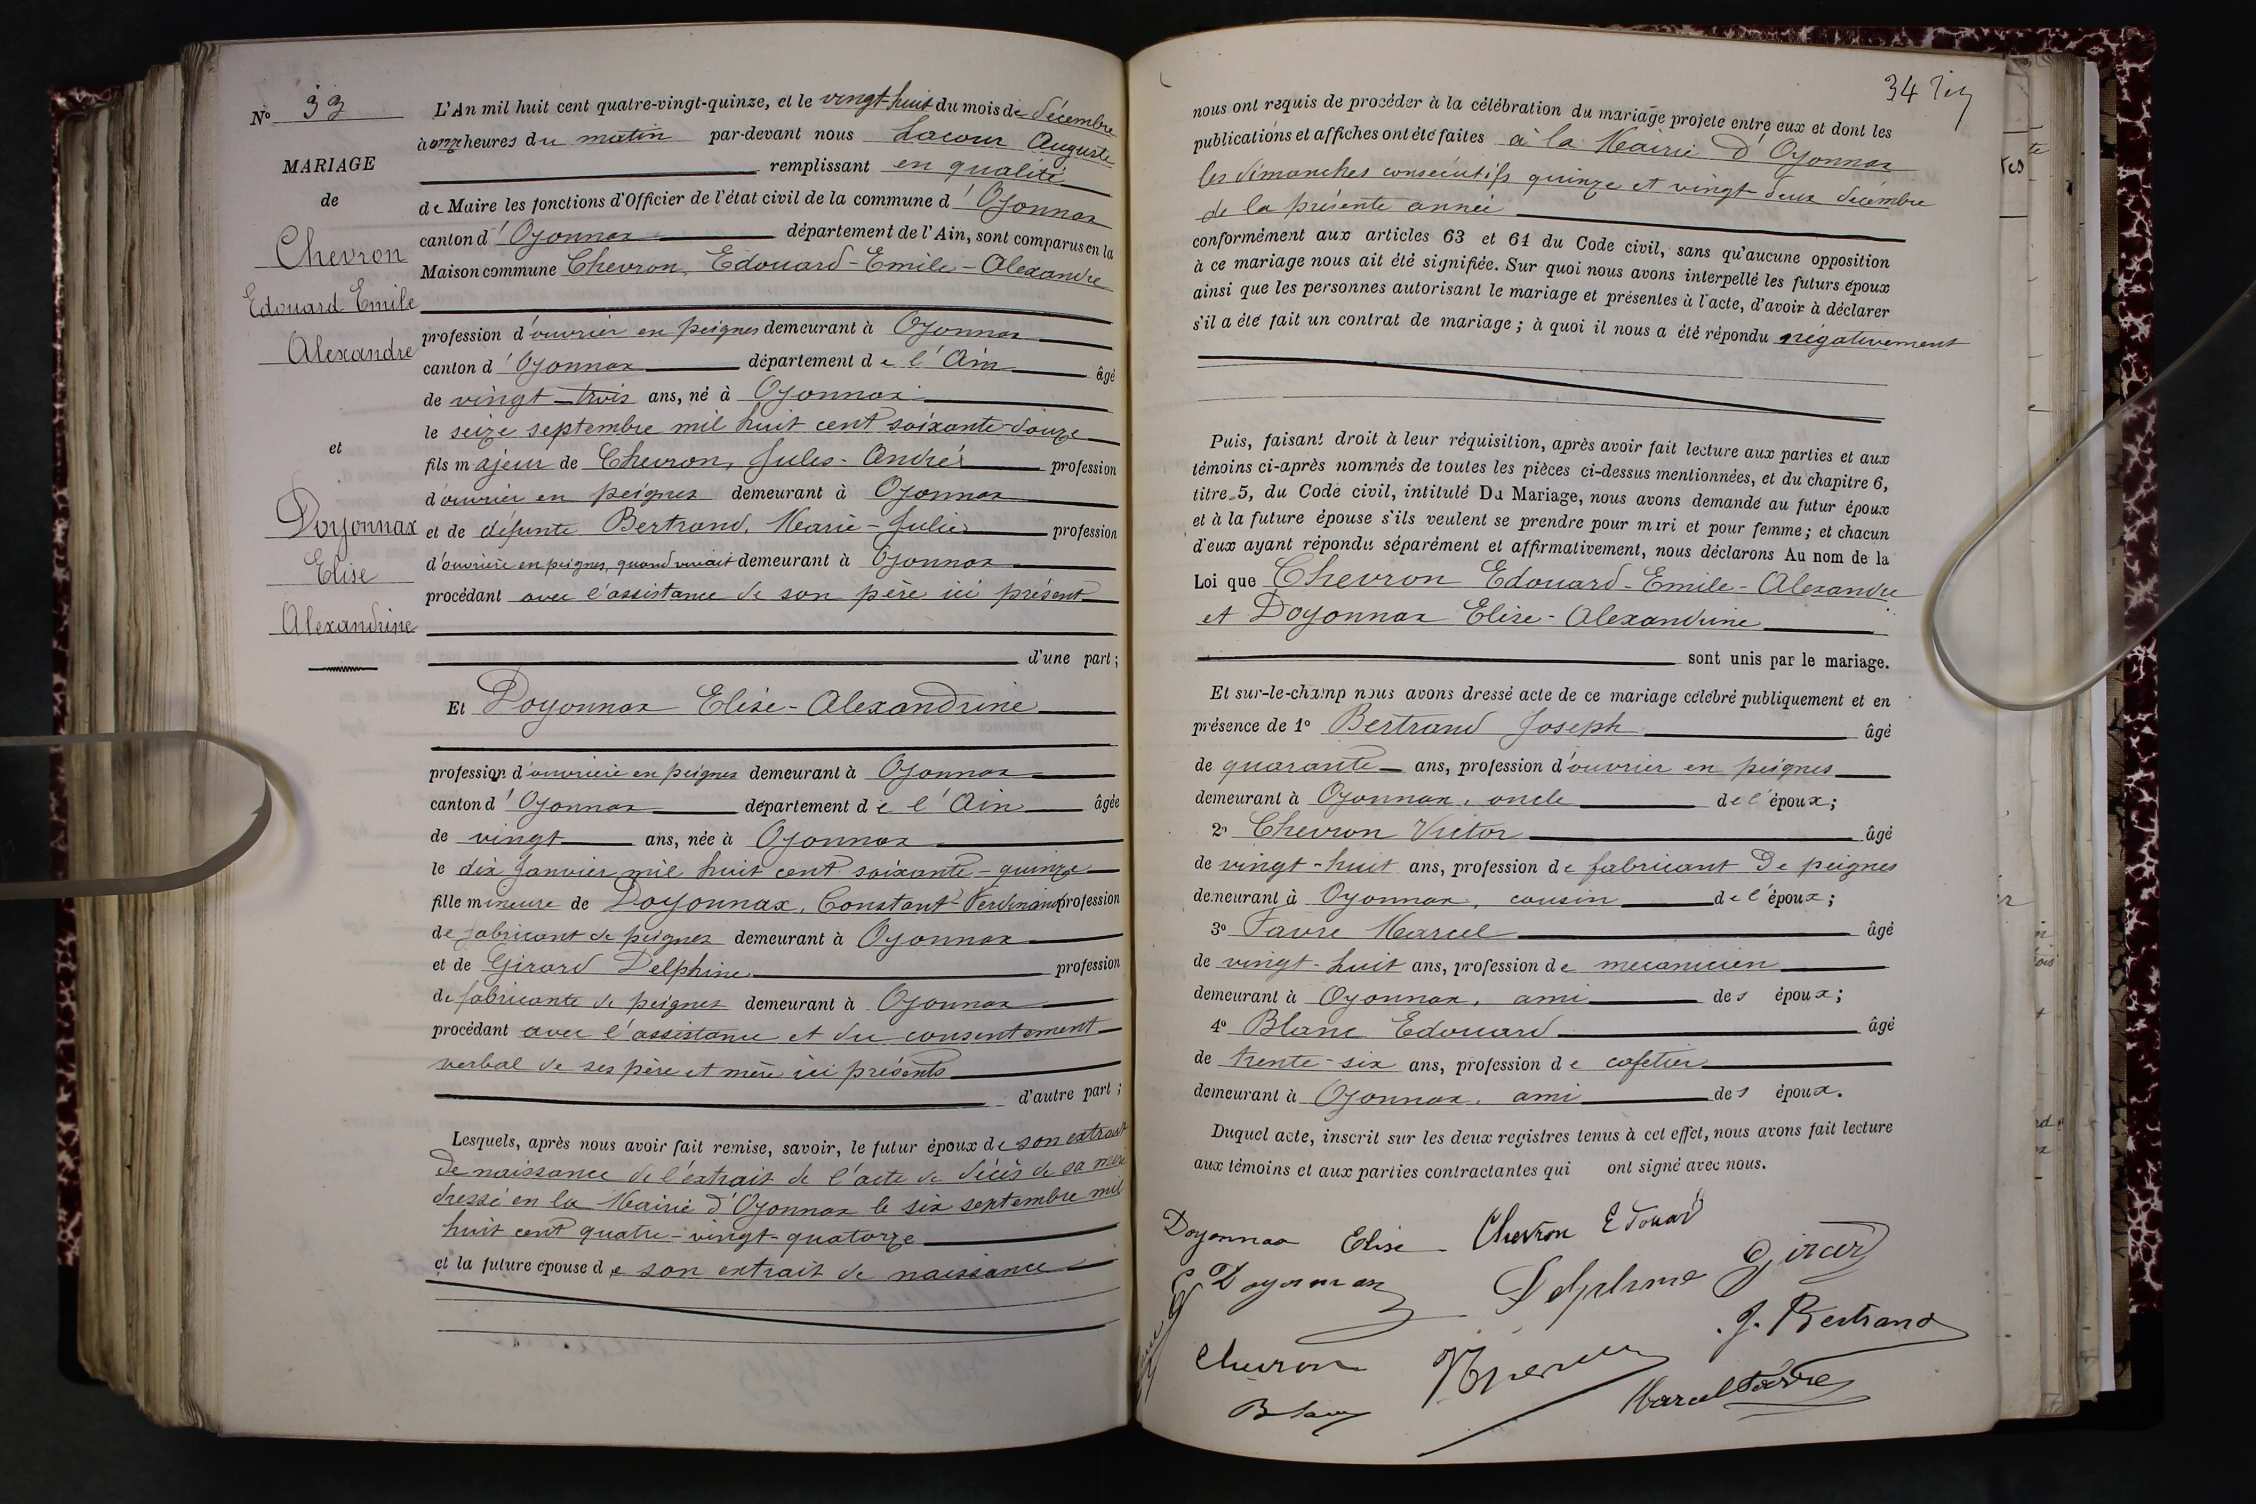 N° 33
MARIAGE
de
Chevron
Edouard Emile
Alexandre
et
Doyonnax
Elise
Alexandrine
L'An mil huit cent quatre-vingt-quinze, et le vingt-huit du mois de décembre
à onze heures du matin par-devant nous Lacour Auguste
remplissant en qualité
de Maire les fonctions d'Officier de l'état civil de la commune d'Oyonnax
canton d'Oyonnax département de l'Ain, sont comparus en la
Maison commune Chevron, Edouard-Emile-Alexandre
profession d'ouvrier en peignes demeurant à Oyonnax
canton d'Oyonnax département de l'Ain âgé
de vingt-trois ans, né à Oyonnax
le seize septembre mil huit cent soixante-douze
fils majeur de Chevron, Jules-André profession
d'ouvrier en peignes demeurant à Oyonnax
et de défunte Bertrand, Marie-Julie profession
d'ouvrière en peignes, quand vivait demeurant à Oyonnax
procédant avec l'assistance de son père ici présent
d'une part;
Et Doyonnax Elise-Alexandrine
profession d'ouvrière en peignes demeurant à Oyonnax
canton d'Oyonnax département de l'Ain âgée
de vingt ans, née à Oyonnax
le dix Janvier mil huit cent soixante-quinze
fille mineure de Doyonnax, Constant Ferdinand profession
de fabricant de peignes demeurant à Oyonnax
et de Girard Delphine profession
de fabricante de peignes demeurant à Oyonnax
procédant avec l'assistance et du consentement
verbal de ses père et mère ici présents
d'autre part;
Lesquels, après nous avoir fait remise, savoir, le futur époux de son extrait
de naissance de l'extrait de l'acte de décès de sa mère
dressé en la Mairie d'Oyonnax le six septembre mil
huit cent quatre-vingt-quatorze
et la future épouse de son extrait de naissance
34
nous ont requis de procéder à la célébration du mariage projeté entre eux et dont les
publications et affiches ont été faites à la Mairie d'Oyonnax
les dimanches consécutifs quinze et vingt-deux décembre
de la présente année
conformément aux articles 63 et 64 du Code civil, sans qu'aucune opposition
à ce mariage nous ait été signifiée. Sur quoi nous avons interpellé les futurs époux
ainsi que les personnes autorisant le mariage et présentes à l'acte, d'avoir à déclarer
s'il a été fait un contrat de mariage; à quoi il nous a été répondu négativement
Puis, faisant droit à leur réquisition, après avoir fait lecture aux parties et aux
témoins ci-après nommés de toutes les pièces ci-dessus mentionnées, et du chapitre 6,
titre 5, du Code civil, intitulé Du Mariage, nous avons demandé au futur époux
et à la future épouse s'ils veulent se prendre pour mari et pour femme; et chacun
d'eux ayant répondu séparément et affirmativement, nous déclarons Au nom de la
Loi que Chevron Edouard-Emile-Alexandre
et Doyonnax Elise-Alexandrine
sont unis par le mariage.
Et sur-le-champ nous avons dressé acte de ce mariage célébré publiquement et en
présence de 1° Bertrand Joseph âgé
de quarante ans, profession d'ouvrier en peignes
demeurant à Oyonnax, oncle de l'époux;
2° Chevron Victor âgé
de vingt-huit ans, profession de fabricant de peignes
demeurant à Oyonnax, cousin de l'époux;
3° Favre Marcel âgé
de vingt-huit ans, profession de mecanicien
demeurant à Oyonnax, ami des époux;
4° Blanc Edouard âgé
de trente-six ans, profession de cafetier
demeurant à Oyonnax, ami des époux.
Duquel acte, inscrit sur les deux registres tenus à cet effet, nous avons fait lecture
aux témoins et aux parties contractantes qui ont signé avec nous.
Doyonnax Elise Chevron Edouard
Doyonnax Delphine Girard
J. Bertrand
Chevron
Marcel Favre
Blanc